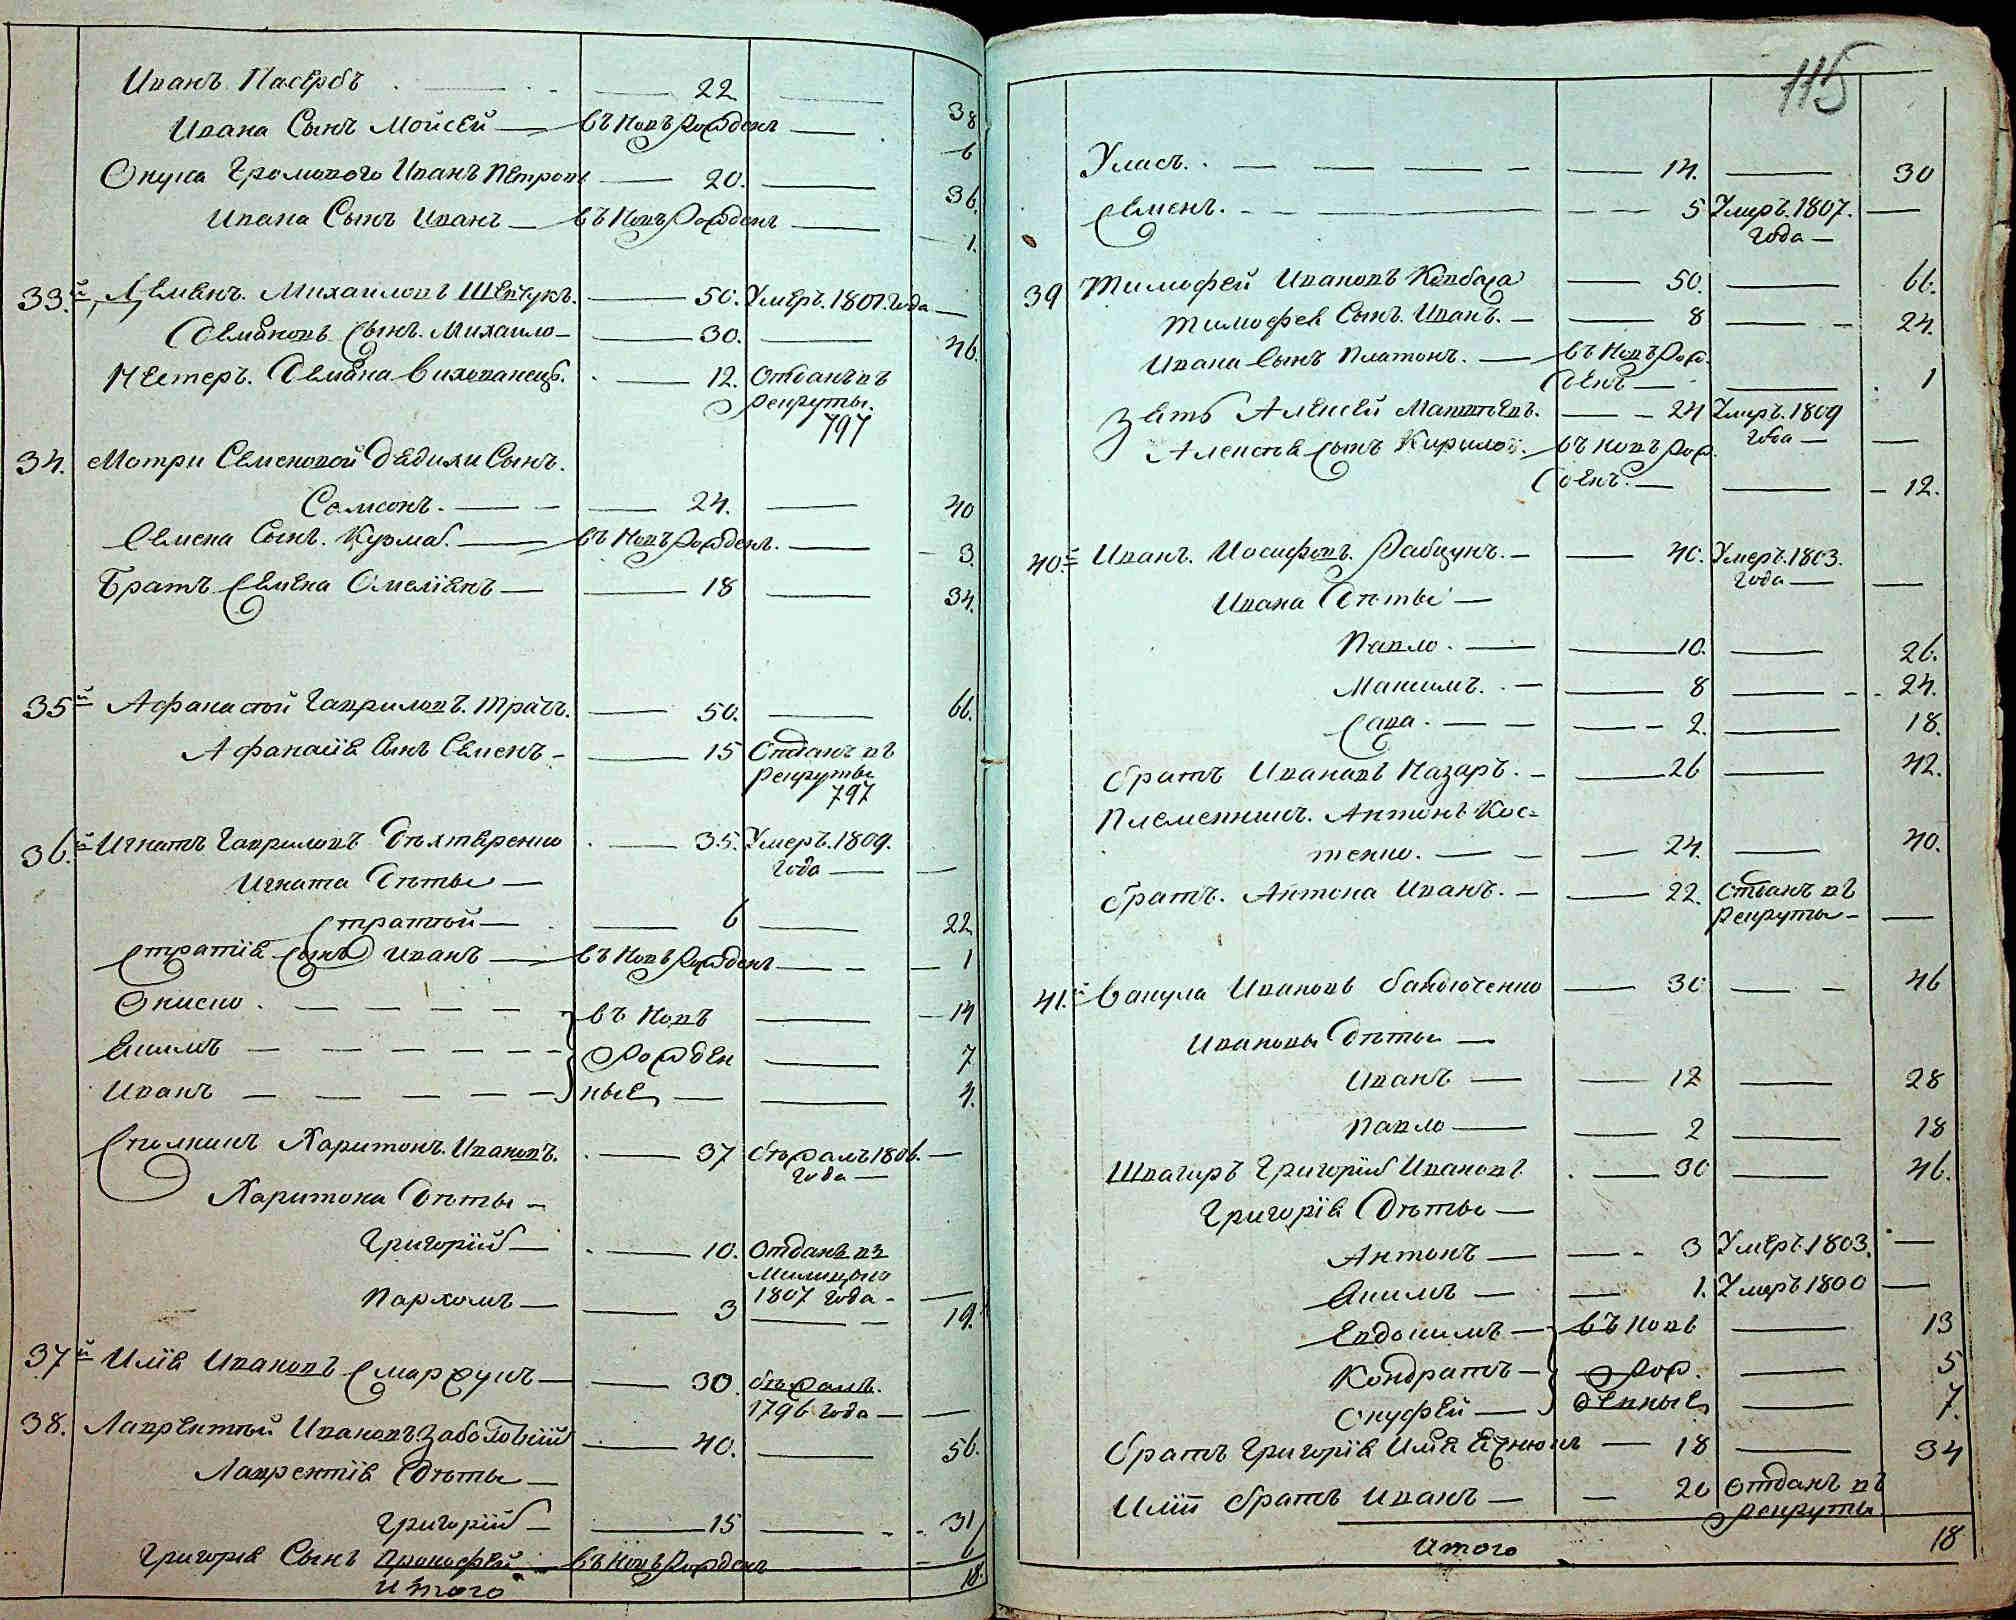 Иванъ Пасербъ 22 38
Ивана Сынъ Мойсей въ новъ рожденъ 6
Опука Громового Иванъ Петровъ 20. 36.
Ивана Сынъ Иванъ въ новъ рожденъ 1.
33.й Демянъ Михаиловъ Шевчукъ. 50. Умеръ. 1801. года
Демановъ Сынъ. Михаило 30. 46.
Нестеръ. Демана Вихованецъ. 12. Отданъ въ
рекруты.
797
34. Мотри Семеновой Дядихи Сынъ.
Самсонъ. 24. 40
Семена Сынъ. Кузма. въ новъ рожденъ. 3.
Братъ Семена Омелiянъ 18 34.
35й Афанасiй Гавриловъ. Трачъ. 50. 66.
Афанасiя Сынъ Семенъ 15 Отданъ въ
рекруты
797
36.й Игнатъ Гавриловъ Дихтяренко 35. Умеръ. 1809.
года
Игната Дѣты
Стратiй 6 22
Стратiя Сынъ Иванъ въ новъ рожденъ 1
Ониско. въ новъ 14
Якимъ рожден 7
Иванъ ные 4.
Спiлникъ Харитонъ. Ивановъ. 37 бѣжалъ 1806.
года
Харитона Дѣты
Григорiй 10. Отданъ въ
милицыю
1807 года
Пархомъ 3 19.
37й Илiя Ивановъ Смаржукъ 30. бѣжалъ.
1796 года
38. Лаврентiй Ивановъ Заболотнiй 40. 56.
Лаврентiя Дѣты
Григорiй 15 31
Григорiя Сынъ Прокофей въ новъ рожденъ 6
Итого 18.
115
Уласъ. 14. 30
Семенъ. 5 Умеръ. 1807.
года
39 Тимофей Ивановъ Ковбаса 50. 66.
Тимофея Сынъ. Иванъ. 8 24
Ивана Сынъ Платонъ. въ новъ рож
денъ 1
Зять Алексей Матвѣевъ. 24 Умеръ. 1809
года
Алексѣя Сынъ Кирило. въ новъ рож
денъ. 12.
40.й Иванъ. Иосифовъ. Рабцунъ. 40. Умеръ. 1803.
года
Ивана Дѣты
Павло. 10. 26.
Максимъ. 8 24.
Сава. 2. 18.
братъ Ивановъ Назаръ. 26 42.
Племенникъ. Антонъ Кос-
тенко. 24. 40.
братъ. Антона Иванъ. 22. Отданъ въ
рекруты
41.й Вакула Ивановъ Бандюченко 30 46
Ивановы Дѣты
Иванъ 12 28
Павло 2 18
Швагиръ Григорiй Ивановъ 30 46.
Григорiя Дѣты
Антонъ 3 Умеръ. 1803.
Якимъ 1. Умеръ 1800
Евдокимъ въ новъ 13
Кондратъ рож. 5
Онуфрей денные 7.
братъ Григорiя Илiя 18 34
Илiи братъ Иванъ 20 Отданъ въ
рекруты
Итого 18